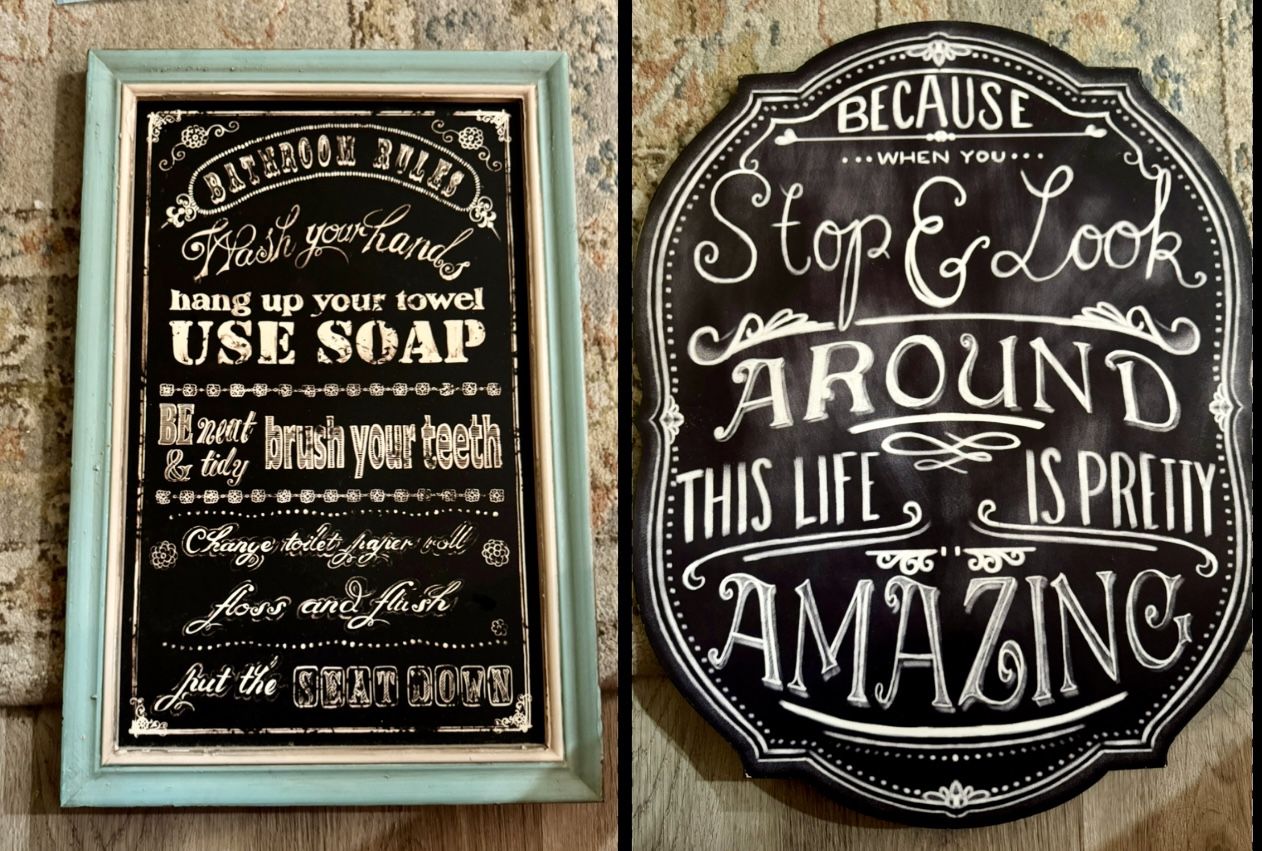 BATHROOM RULES
Wash your hands
hang up your towel
USE SOAP
BE neat
& tidy
brush your teeth
Change toilet paper roll
floss and flush
put the SEAT DOWN
BECAUSE
...WHEN YOU...
Stop & Look
AROUND
THIS LIFE IS PRETTY
AMAZING